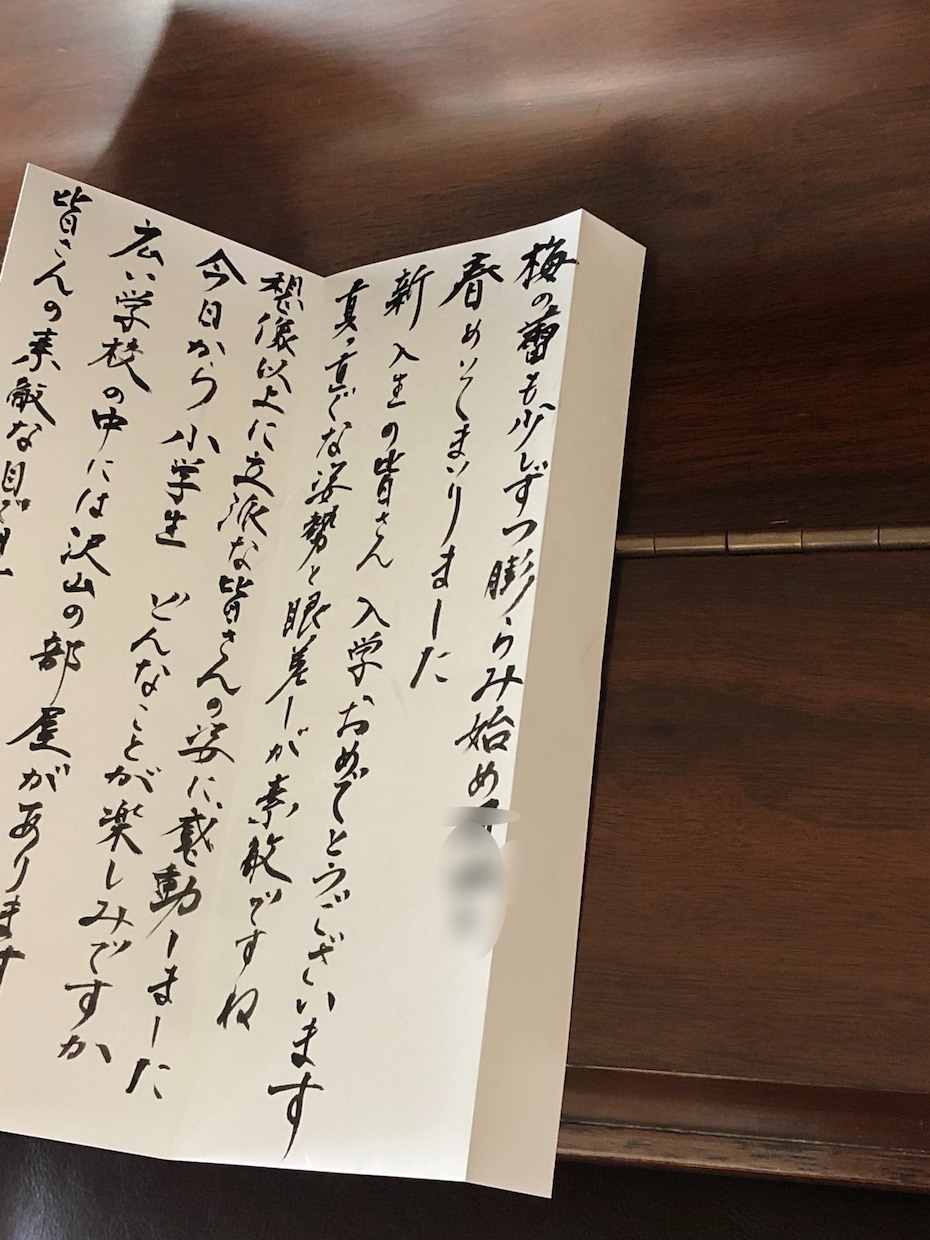 梅の蕾も少しずつ膨らみ始め
春めいてまいりました
新入生の皆さん 入学おめでとうございます
真っ直ぐな姿勢と眼差しが素敵ですね
想像以上に立派な皆さんの姿に感動しました
今日から小学生 どんなことが楽しみですか
広い学校の中には沢山の部屋があります
皆さんの素敵な目で